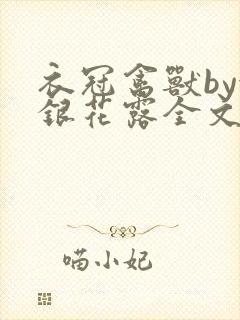 衣冠禽獸by
銀花露全文
喵小妃